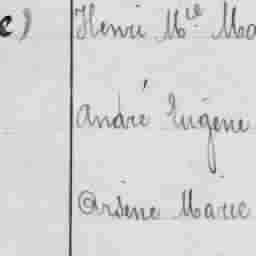 e) Henri Mce Ma
André Eugène
Arsène Marie